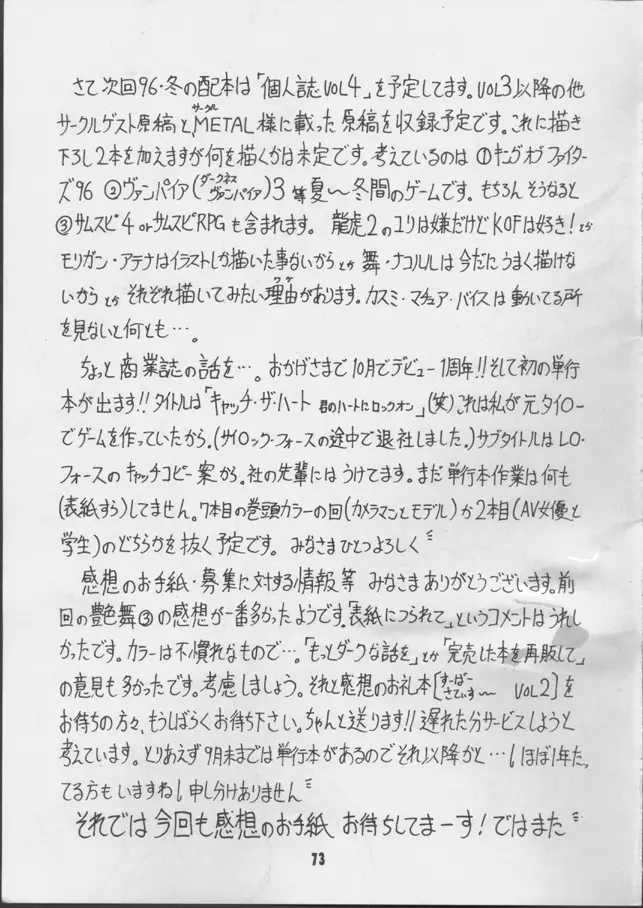 さて次回96・冬の配本は「個人誌VOL4」を予定してます。VOL3以降の他
サークルゲスト原稿と、METAL様に載った原稿を収録予定です。これに描き
サークル
下ろし2本を加えますが何を描くかは未定です。考えているのは①キングオブファイター
ズ96 ②ヴァンパイア(ダークネス ヴァンパイア)3等夏〜冬間のゲームです。もちろんそうなると
③サムスピ4 orサムスピRPGも含まれます。 龍虎2のユリは嫌だけどKOFは好き!とか
モリガン・アテナはイラストしか描いた事ないからとか 舞・ナコルルは今だにうまく描けな
いからとか それぞれ描いてみたい理由があります。カスミ・マチュア・バイスは動いてる所
ワケ
を見ないと何とも…。
ちょっと商業誌の話を…。おかげさまで10月でデビュー1周年!!そして初の単行
本が出ます!!タイトルは「キャッチ・ザ・ハート 君のハートにロックオン」(笑)これは私が元タイロー
でゲームを作っていたから。(サイロック・フォースの途中で退社しました。)サブタイトルはLO・
フォースのキャッチコピー案から。社の先輩にはうけてます。まだ単行本作業は何も
(表紙すら)してません。7本目の巻頭カラーの回(カメラマンとモデル)か2本目(AV女優と
学生)のどちらかを抜く予定です。 みなさまひとつよろしく
感想のお手紙・募集に対する情報等 みなさまありがとうございます。前
回の艶色舞③の感想が一番多かったようです。「表紙につられて」というコメントはうれし
かったです。カラーは不慣れなもので…。「もっとダークな話を」とか「完売した本を再販して」
の意見も多かったです。考慮しましょう。それと感想のお礼本[すーぱー さてぃすふぁ〜 VOL2]を
お待ちの方々、もうしばらくお待ち下さい。ちゃんと送ります!!遅れた分サービスしようと
考えています。とりあえず9月末までは単行本があるのでそれ以降かと…(ほぼ1年た
てる方もいますね)申し分けありません
それでは今回も感想のお手紙 お待ちしてまーす!ではまた
73